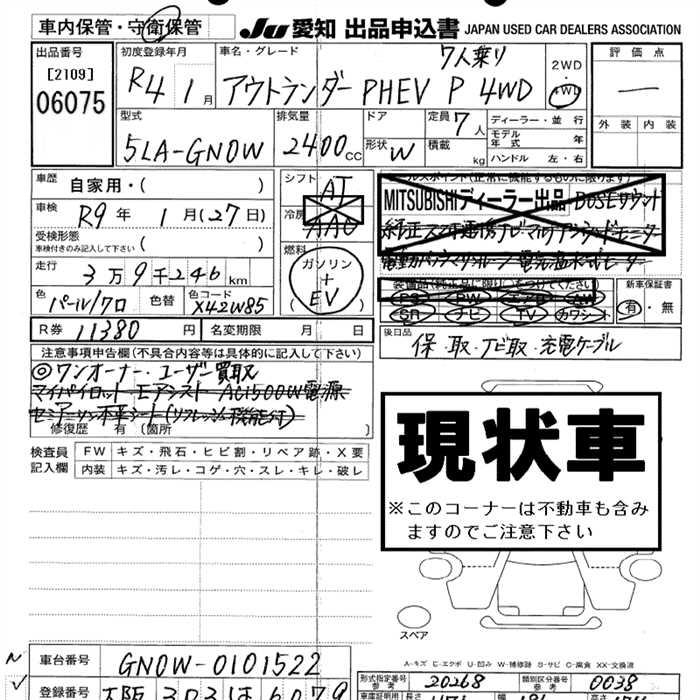 車内保管・守衛保管 JU 愛知 出品申込書 JAPAN USED CAR DEALERS ASSOCIATION
出品番号 初度登録年月 車名・グレード 7人乗り 2WD 評価点
[2109] R4 1月 アウトランダー PHEV P 4WD 4WD —
06075 外装 内装
型式 排気量 ドア 定員 7人 ディーラー・並行
5LA-GN0W 2400cc 形状 W 積載 kg モデル年式 年
ハンドル 左・右
車歴 自家用・( ) シフト AT セールスポイント(正常に機能するものに限ります)
車検 R9年 1月(27日) 冷房 AAC MITSUBISHIディーラー出品 BOSEサウンド
受検形態 純正スマホ連携ナビ マルチアラウンドモニター
車検付きのみ記入して下さい ( )
走行 3万9千246km 燃料 ガソリン+EV
色 パール/クロ 色替 色コード X42W85 装備品(純正品に限り)○をつけてください 新車保証書
PS PW エアB AW 有・無
SR ナビ TV カワシート
R券 11380円 名変期限 月 日 後日品
保・取・ナビ取・充電ケーブル
注意事項申告欄(不具合内容等は具体的に記入して下さい)
◎ワンオーナー・ユーザー買取
マイパイロット・モアシスト AC1500W電源
セミアニリン本革シート(リフレッシュ機能付)
修復歴 有(箇所 )
検査員記入欄 FW キズ・飛石・ヒビ割・リペア跡・X要
内装 キズ・汚レ・コゲ・穴・スレ・キレ・破レ
現状車
※このコーナーは不動車も含み
ますのでご注意下さい
スペア
A-キズ E-エクボ U-凹み W-補修跡 S-サビ C-腐食 XX-交換済
車台番号 GN0W-0101522 形式指定番号 参考 20268 類別区分番号 参考 0038
登録番号 大阪 303 は 6079